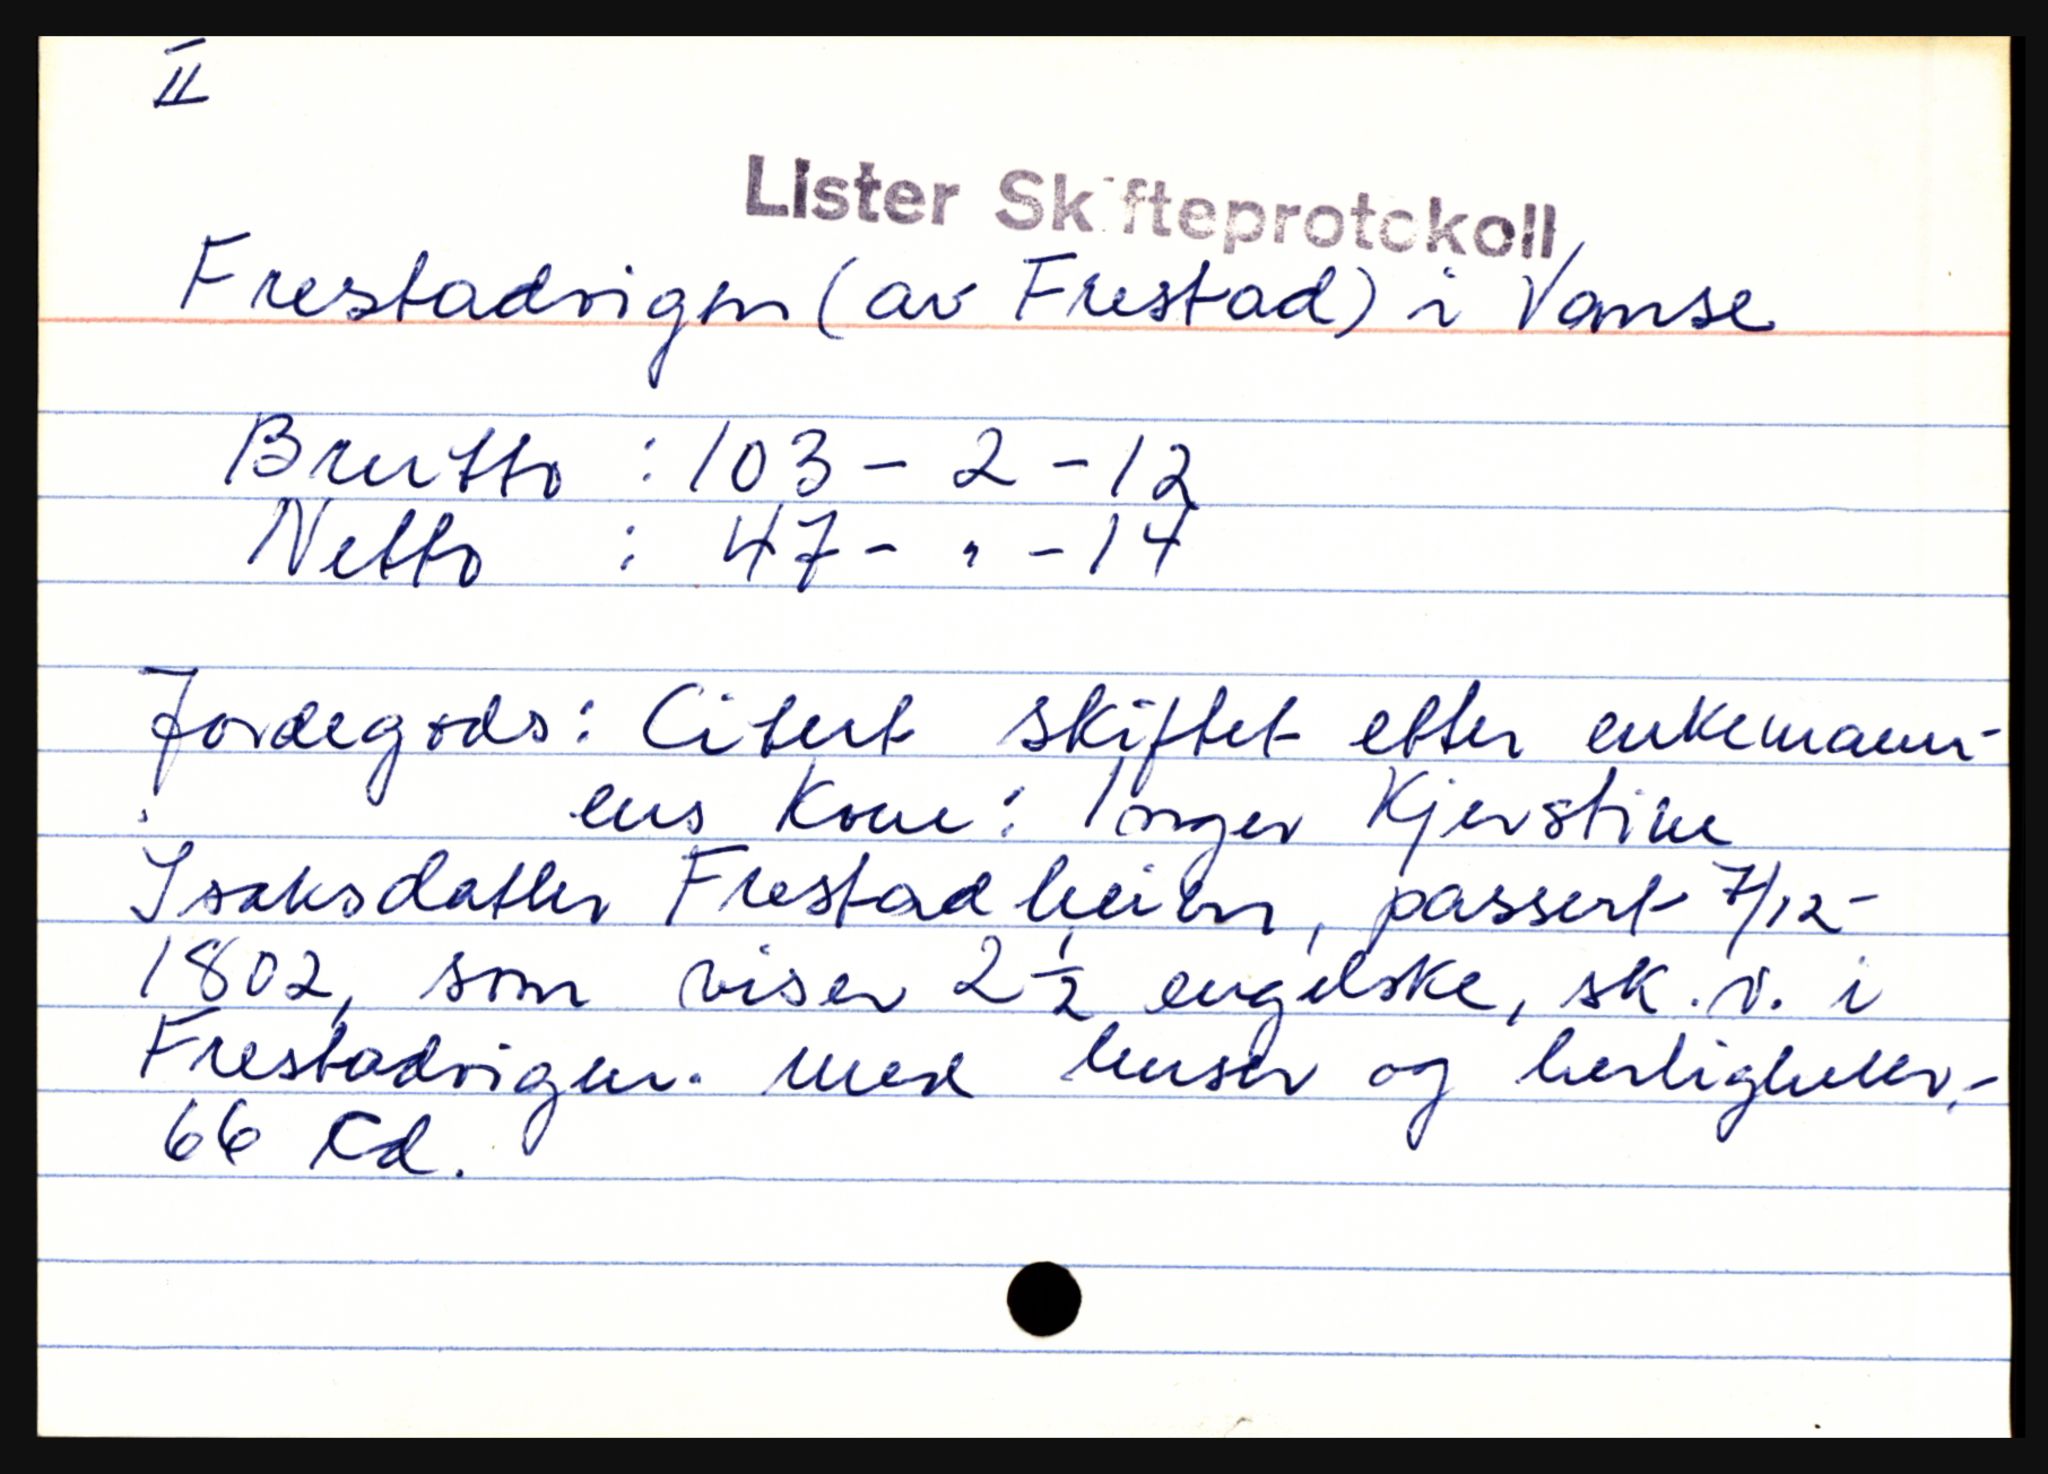 II
Lister Skifteprotokoll
Frestadvigen (av Frestad) i Vanse
Brutto : 103 - 2 - 12
Netto : 47 - " - 14
Jordegods: Citert skiftet etter enkemann-
ens kone: Inger Kjerstine
Isaksdatter Frestadheien, passert 7/12-
1802, som viser 2 1/2 engelske, sk. v. i
Frestadvigen. med huser og herligheter,-
66 rd.